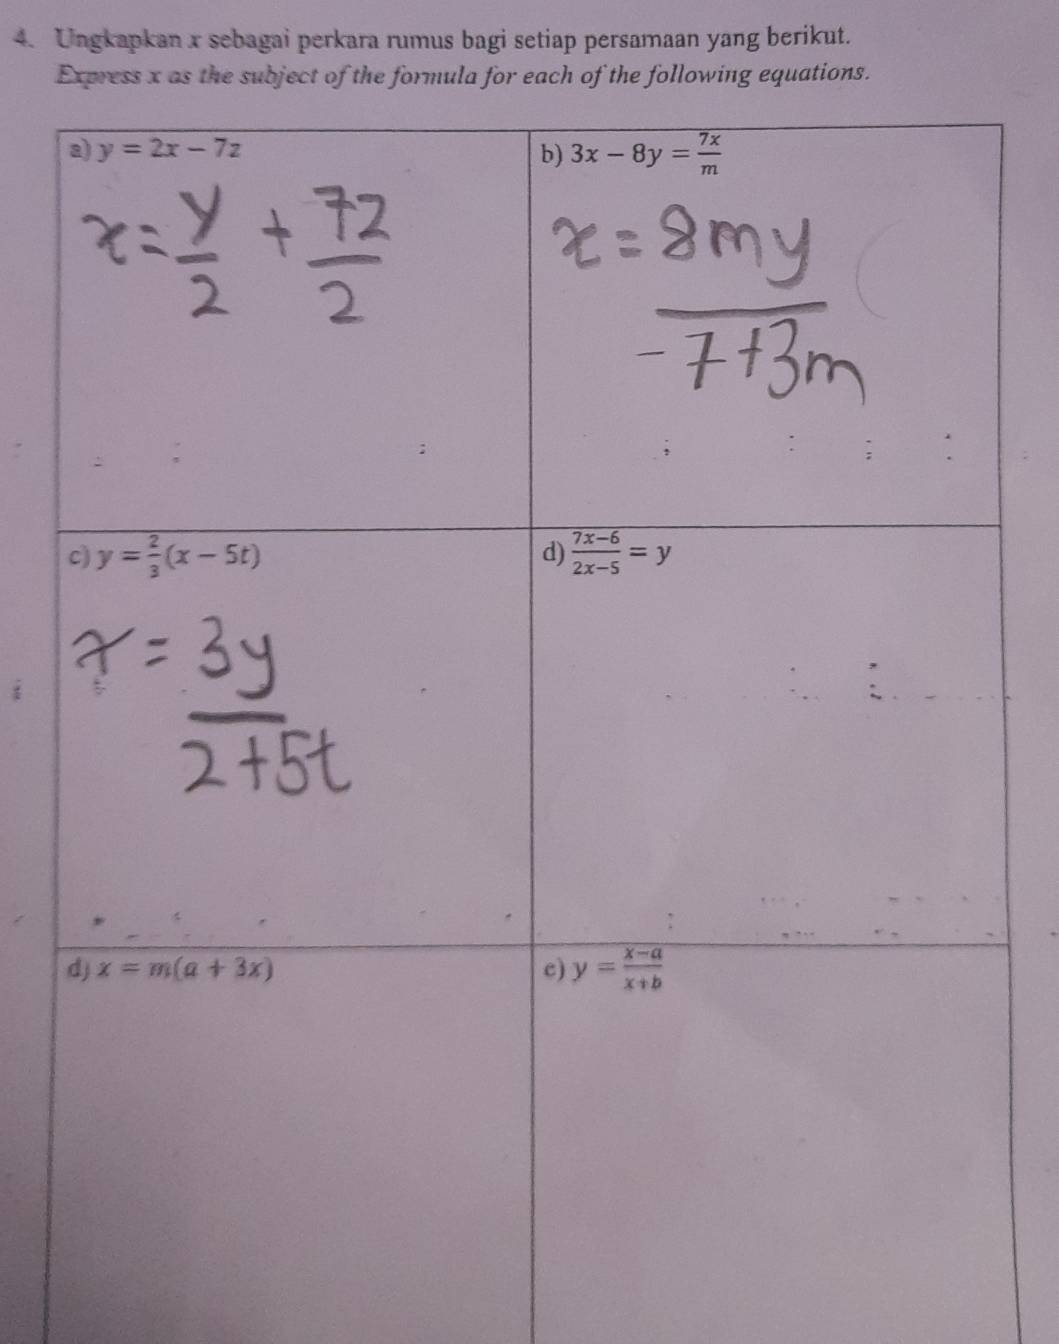 4. Ungkapkan x sebagai perkara rumus bagi setiap persamaan yang berikut.
Express x as the subject of the formula for each of the following equations.
a) y = 2x − 7z
x = y/2 + 7z/2
b) 3x − 8y = 7x/m
x = 8my/(-7+3m)
c) y = 2/3 (x − 5t)
x = 3y/(2+5t)
d) (7x−6)/(2x−5) = y
d) x = m(a + 3x)
e) y = (x−a)/(x+b)